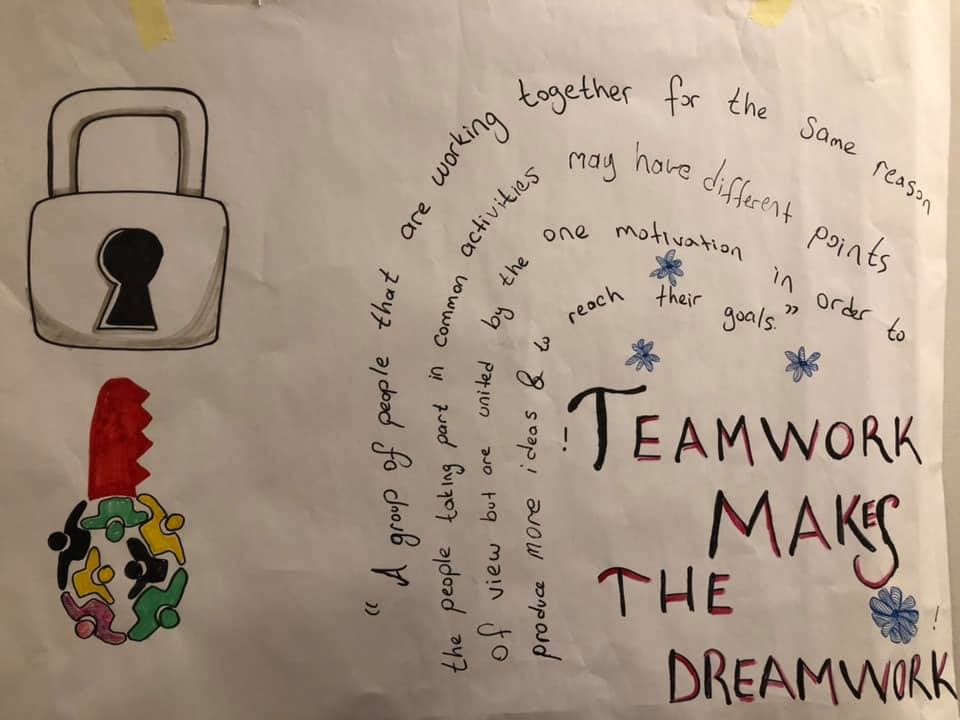 “ A group of people that are working together for the same reason
the people taking part in common activities may have different points
of view but are united by the one motivation in order to
produce more ideas & to reach their goals.”
!- TEAMWORK
MAKES
THE
DREAMWORK !